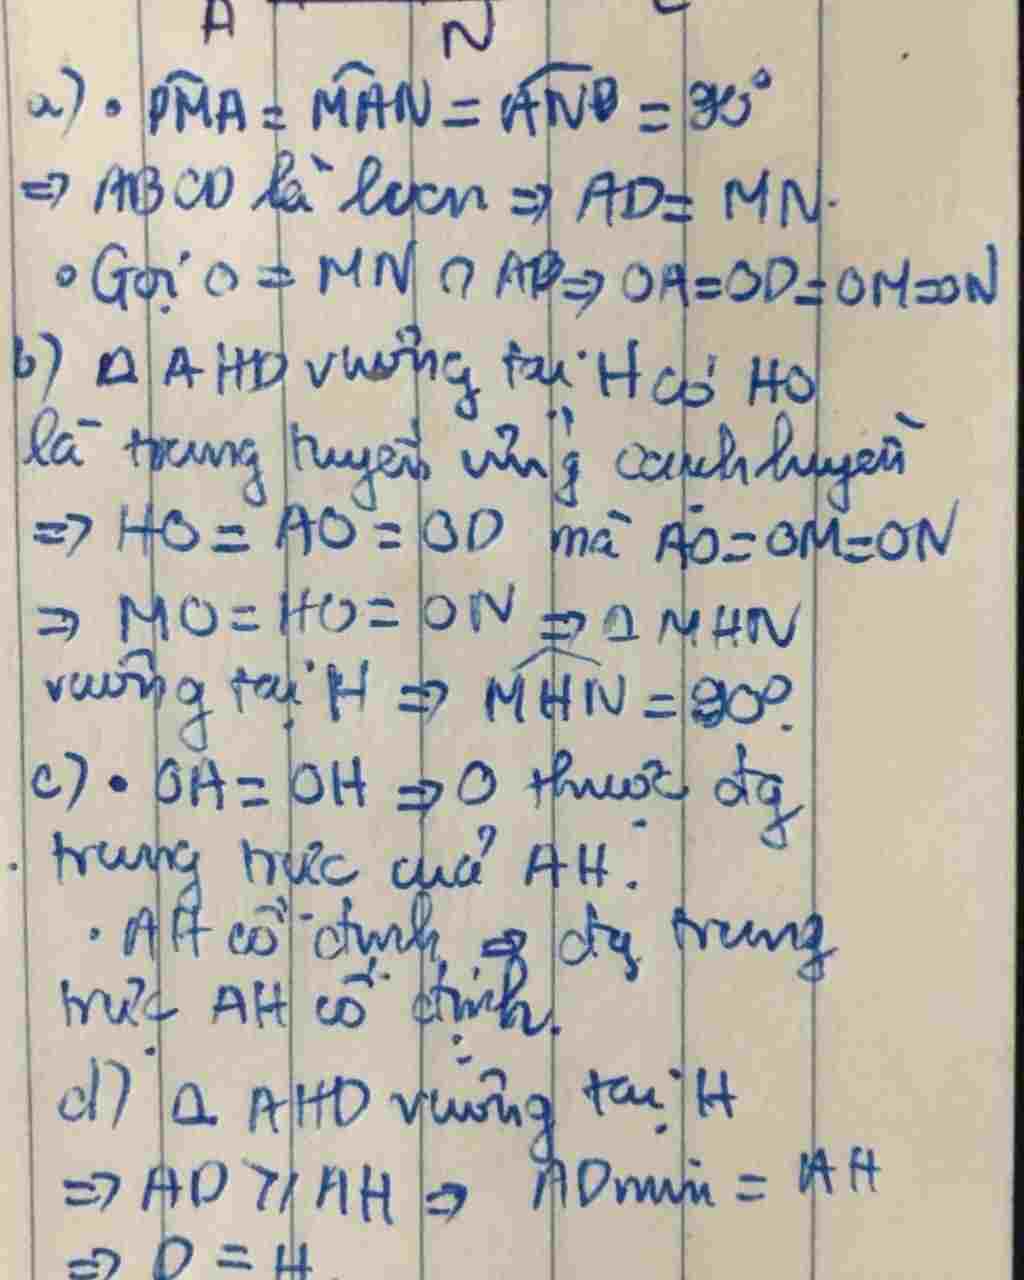 A N
a) • DMA = MAN = AND = 90°
=> ABCD là hcn => AD = MN.
• Gọi O = MN ∩ AD => OA=OD=OM=ON
b) Δ AHD vuông tại H có HO
là trung tuyến ứng cạnh huyền
=> HO = AO = OD mà AO=OM=ON
=> MO = HO = ON => Δ MHN
vuông tại H => MHN = 90°.
c) • OA = OH => O thuộc đg
trung trực của AH.
• AH cố định => đg trung
trực AH cố định.
d) Δ AHD vuông tại H
=> AD ≥ AH => ADmin = AH
=> D = H